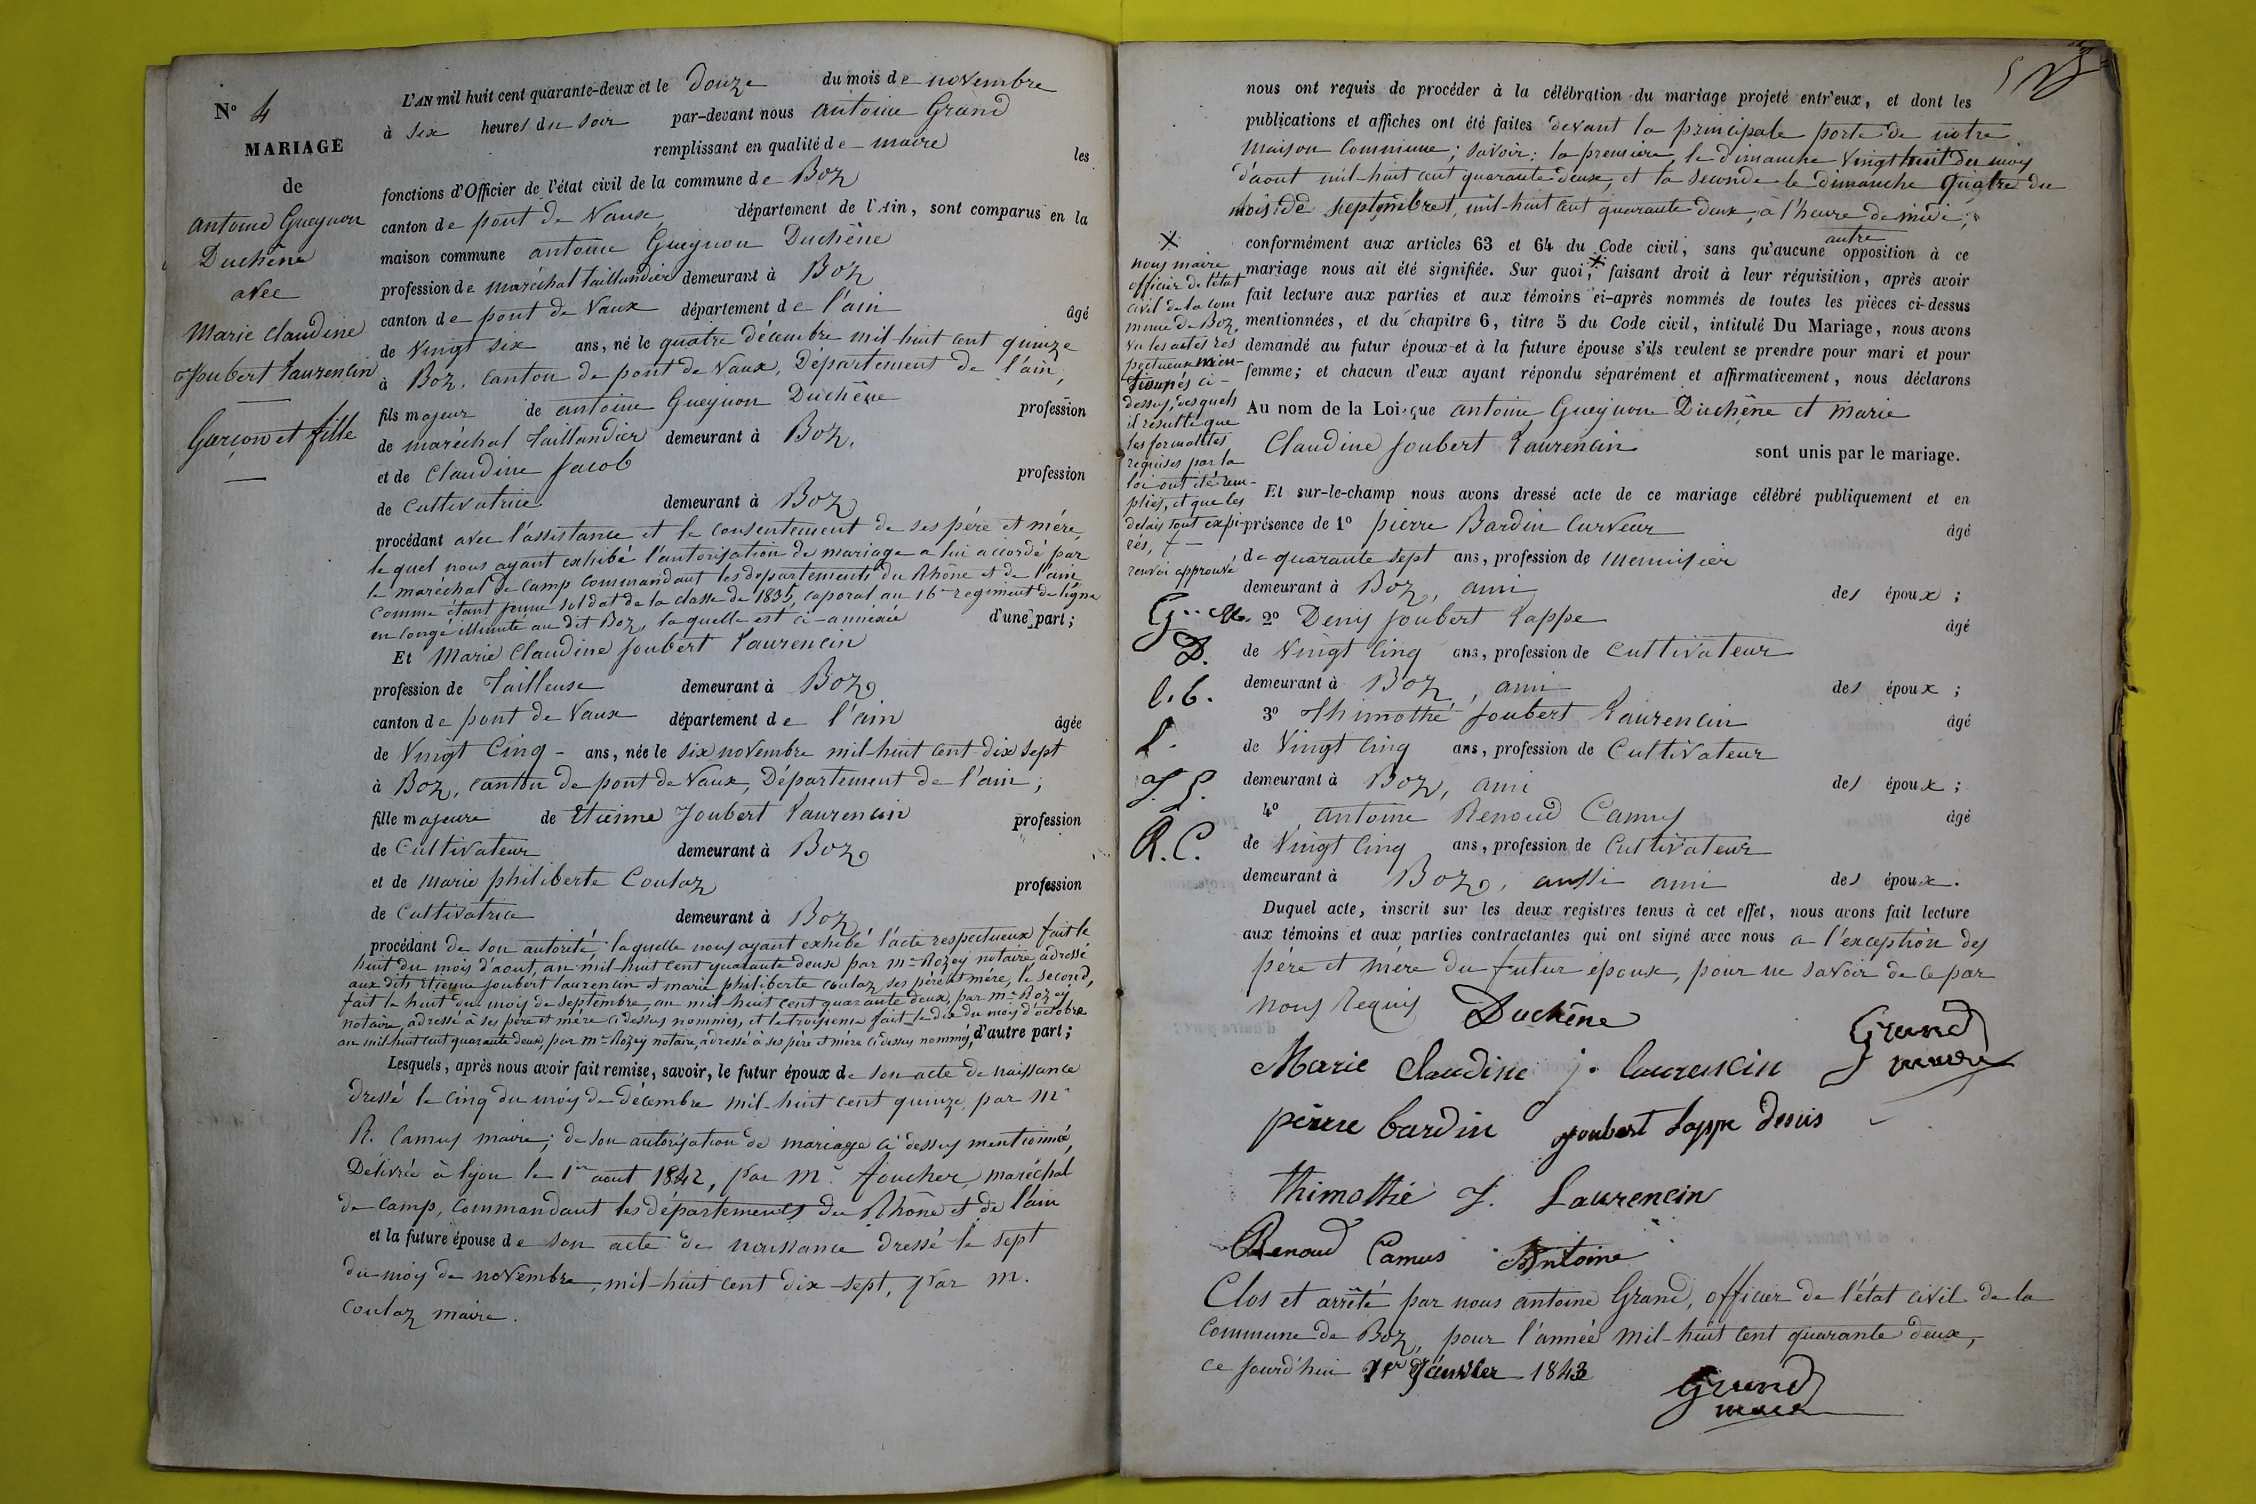 N° 4
MARIAGE
de
antoine Gueynon
Duchêne
avec
Marie Claudine
Joubert Laurencin
Garçon et fille
L'AN mil huit cent quarante-deux et le douze du mois de novembre
à six heures du soir par-devant nous antoine Grand
remplissant en qualité de maire les
fonctions d'Officier de l'état civil de la commune de Boz
canton de pont de Vaux département de l'Ain, sont comparus en la
maison commune antoine Gueynon Duchêne
profession de maréchal taillandier demeurant à Boz
canton de pont de Vaux département de l'ain âgé
de Vingt six ans, né le quatre décembre mil-huit cent quinze
à Boz, canton de pont de Vaux, Département de l'ain,
fils majeur de antoine Gueynon Duchêne profession
de maréchal taillandier demeurant à Boz,
et de Claudine Jacob profession
de Cultivatrice demeurant à Boz
procédant avec l'assistance et le consentement de ses père et mère,
lequel nous ayant exhibé l'autorisation de mariage a lui accordé par
le maréchal de Camp commandant les departements du Rhône et de l'ain
comme étant jeune soldat de la classe de 1835, caporal au 16me regiment de ligne
en congé illimité au dit Boz, laquelle est ci-annexée d'une part;
Et Marie Claudine Joubert Laurencin
profession de Tailleuse demeurant à Boz
canton de pont de Vaux département de l'ain âgée
de Vingt Cinq - ans, née le six novembre mil-huit cent dix sept
à Boz, canton de pont de Vaux, Département de l'ain;
fille majeure de Etienne Joubert Laurencin profession
de Cultivateur demeurant à Boz
et de Marie philiberte Coulaz profession
de Cultivatrice demeurant à Boz
procédant de son autorité, laquelle nous ayant exhibé l'acte respectueux fait le
huit du mois d'aout, an mil-huit cent quarante deux par me Rozey notaire, adressé
aux dits Etienne Joubert Laurencin et marie philiberte Coulaz ses père et mère, le second,
fait le huit du mois de septembre an mil-huit cent quarante deux, par me Rozey
notaire, adressé à ses père et mère ci dessus nommés, et le troisieme fait le dix du mois d'octobre
an mil-huit cent quarante deux, par me Rozey notaire, adressé à ses père et mère ci dessus nommé, d'autre part;
Lesquels, après nous avoir fait remise, savoir, le futur époux de son acte de naissance
dressé le cinq du mois de décembre mil-huit cent quinze, par mr
R. Camus maire; de son autorisation de mariage ci dessus mentionné,
Délivrée à lyon le 1er aout 1842, par Mr. foucher, maréchal
de camp, commandant les départements du Rhône et de l'ain
et la future épouse de son acte de naissance dressé le sept
du mois de novembre, mil-huit cent dix-sept, par m.
Coulaz maire.
nous ont requis de procéder à la célébration du mariage projeté entr'eux, et dont les
publications et affiches ont été faites devant la principale porte de notre
Maison Commune; savoir: la première, le dimanche Vingt huit du mois
d'aout mil-huit cent quarante deux, et la seconde le dimanche quatre du
mois de septembre, mil-huit cent quarante deux, à l'heure de midi,
conformément aux articles 63 et 64 du Code civil, sans qu'aucune autre opposition à ce
mariage nous ait été signifiée. Sur quoi, X faisant droit à leur réquisition, après avoir
fait lecture aux parties et aux témoins ci-après nommés de toutes les pièces ci-dessus
mentionnées, et du chapitre 6, titre 5 du Code civil, intitulé Du Mariage, nous avons
demandé au futur époux et à la future épouse s'ils veulent se prendre pour mari et pour
femme; et chacun d'eux ayant répondu séparément et affirmativement, nous déclarons
Au nom de la Loi, que antoine Gueynon Duchêne et Marie
Claudine Joubert Laurencin sont unis par le mariage.
Et sur-le-champ nous avons dressé acte de ce mariage célébré publiquement et en
présence de 1° pierre Bardin Curveur âgé
de quarante sept ans, profession de menuisier
demeurant à Boz, ami des époux;
2° Denis Joubert Lappe âgé
de Vingt cinq ans, profession de Cultivateur
demeurant à Boz, ami des époux;
3° Thimothé Joubert Laurencin âgé
de Vingt cinq ans, profession de Cultivateur
demeurant à Boz, ami des époux;
4° antoine Renoud Camus âgé
de Vingt cinq ans, profession de Cultivateur
demeurant à Boz, aussi ami des époux.
Duquel acte, inscrit sur les deux registres tenus à cet effet, nous avons fait lecture
aux témoins et aux parties contractantes qui ont signé avec nous a l'exception des
père et mère du futur époux, pour ne savoir de ce par
nous Requis
X
nous maire
officier de l'état
civil de la com
mune de Boz,
vu les actes res
pectueux men-
tionnés ci-
dessus, desquels
il résulte que
les formalités
requises par la
loi ont été rem-
plies, et que les
delais sont expi-
rés,
renvoi approuvé
D.
C. B.
L.
J. L.
R. C.
Duchêne
Grand
maire
Marie Claudine j. laurencin
pierre bardin joubert Lappe denis
thimothé J. Laurencin
Renoud Camus Antoine
Clos et arrêté par nous antoine Grand, officier de l'état civil de la
Commune de Boz, pour l'année mil-huit cent quarante deux,
ce jourd'hui 1er Janvier 1843
Grand
maire